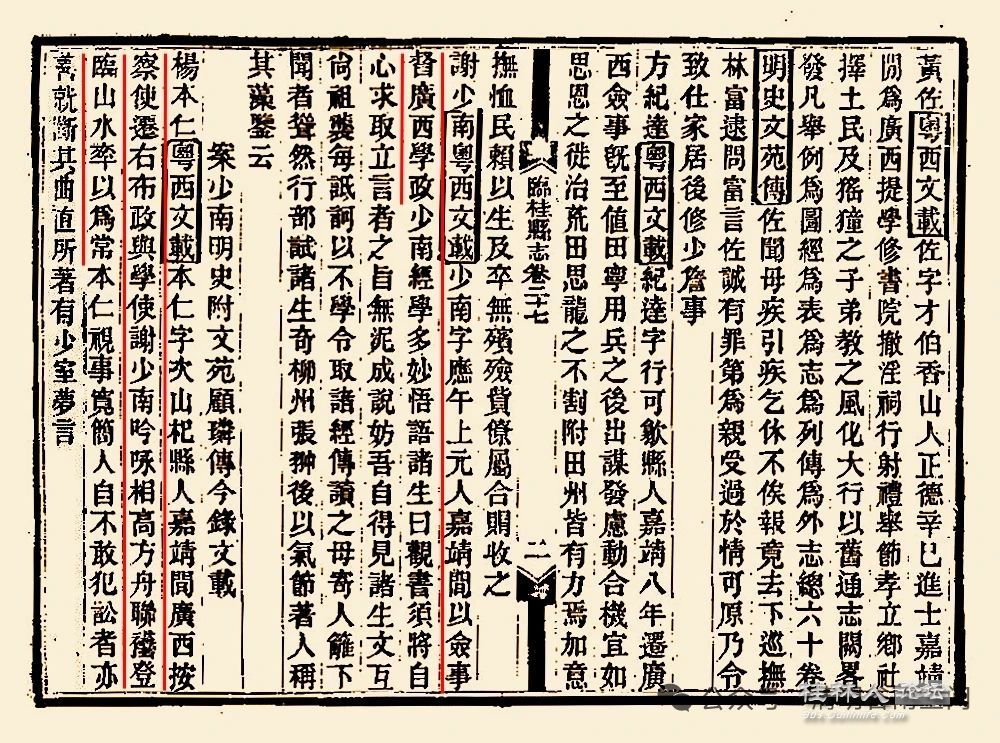 黃佐粵西文載佐字才伯香山人正德辛巳進士嘉靖
間爲廣西提學修書院撤淫祠行射禮舉節孝立鄉社
擇土民及猺獞之子弟教之風化大行以舊通志闕畧
發凡舉例爲圖經爲表爲志爲列傳爲外志總六十卷
明史文苑傳佐聞母疾引疾乞休不俟報竟去下巡撫
林富逮問富言佐誠有罪第爲親受過於情可原乃令
致仕家居後修少詹事
方紀達粵西文載紀達字行可歙縣人嘉靖八年遷廣
西僉事旣至值田寧用兵之後出謀發慮動合機宜如
思恩之徙治荒田思龍之不割附田州皆有力焉加意
臨桂縣志卷二十七
二
撫恤民賴以生及卒無殯殮貲僚屬合賻收之
謝少南粵西文載少南字應午上元人嘉靖間以僉事
督廣西學政少南經學多妙悟語諸生曰觀書須將自
心求取立言者之旨無泥成說妨吾自得見諸生文互
尙祖襲每詆訶以不學令取諸經傳讀之毋寄人籬下
聞者聳然行部試諸生奇柳州張翀後以氣節著人稱
其藻鑒云
案少南明史附文苑顧璘傳今錄文載
楊本仁粵西文載本仁字次山杞縣人嘉靖間廣西按
察使遷右布政與學使謝少南吟咏相高方舟聯襼登
臨山水率以爲常本仁視事寬簡人自不敢犯訟者亦
善就斷其曲直所著有少室夢言
公众号
桂林人论坛